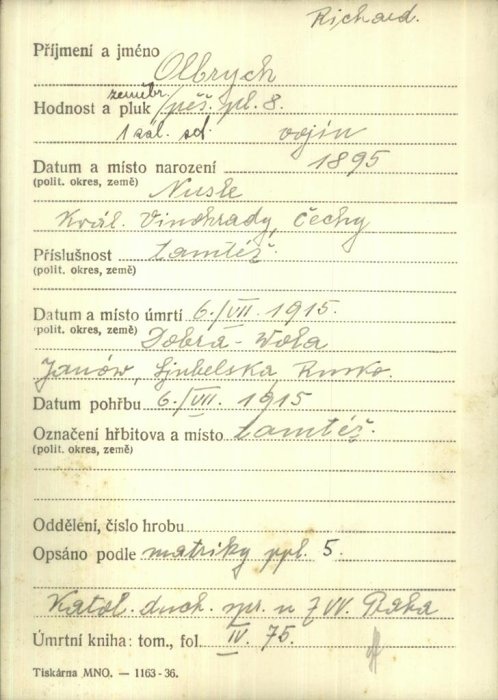 Richard.
Příjmení a jméno Olbrych
zeměbr.
Hodnost a pluk pěš. pl. 8.
1 zál. sd. vojín
Datum a místo narození 1895
(polit. okres, země) Nusle
Král. Vinohrady, Čechy
Příslušnost tamtéž.
(polit. okres, země)
Datum a místo úmrtí 6./VII. 1915.
(polit. okres, země) Dobra-Wola
Janów, Ljubelska Rusko.
Datum pohřbu 6./VII. 1915
Označení hřbitova a místo tamtéž.
(polit. okres, země)
Oddělení, číslo hrobu
Opsáno podle matriky ppl. 5.
Katol. duch. spr. u ZVV. Praha
Úmrtní kniha: tom., fol. IV. 75.
Tiskárna MNO. — 1163-36.